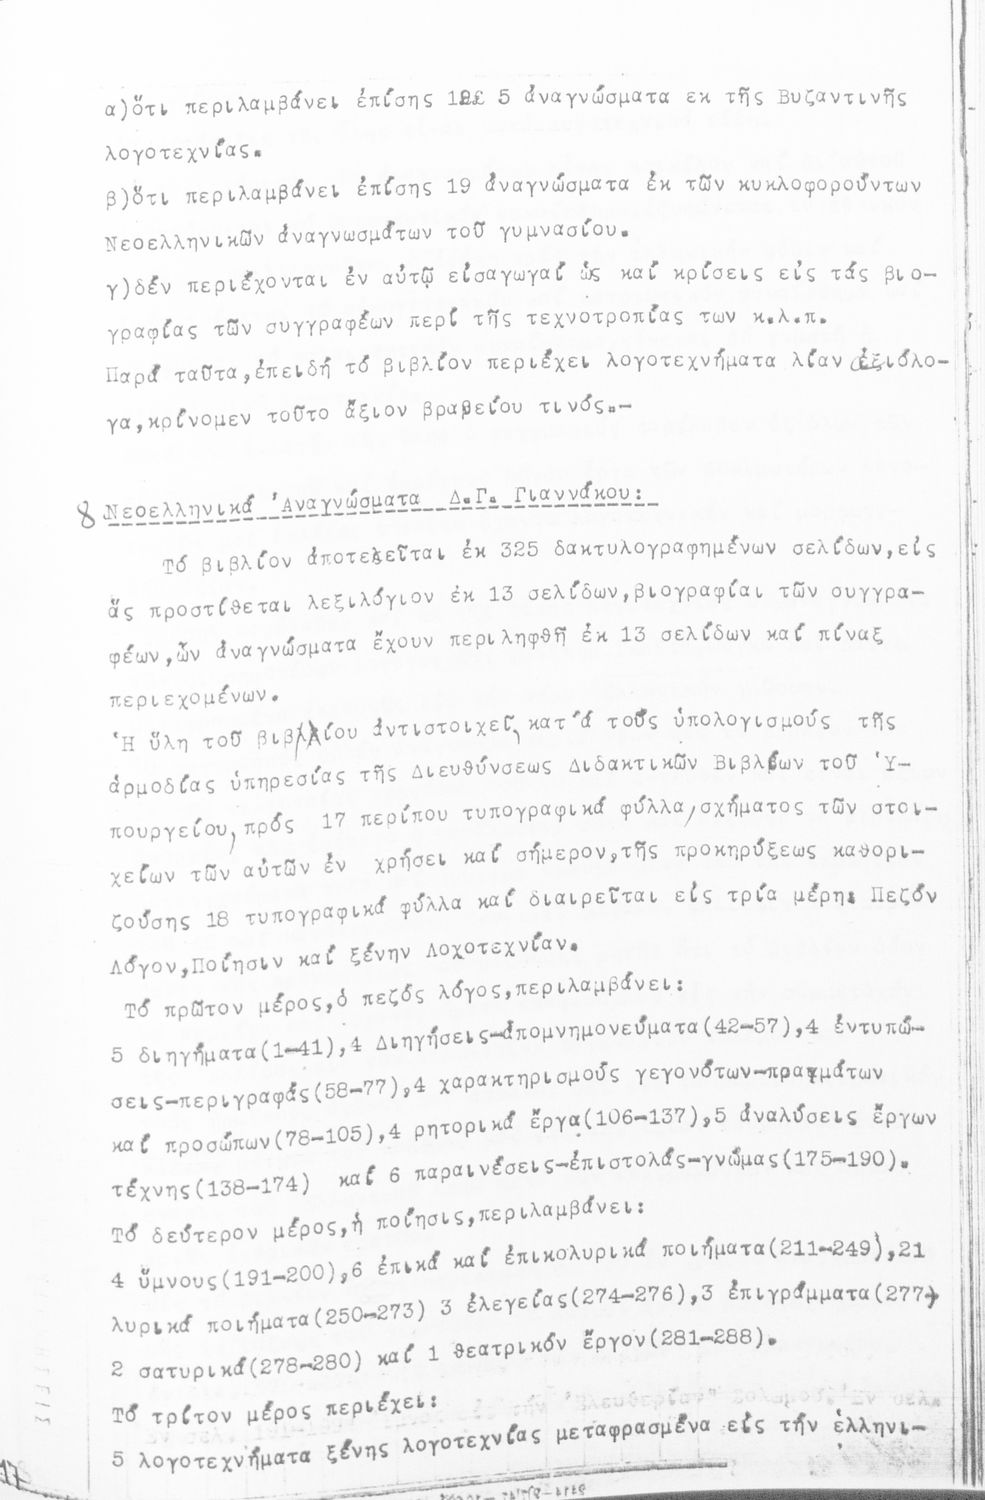 α)ὅτι περιλαμβάνει ἐπίσης 5 ἀναγνώσματα εκ τῆς Βυζαντινῆς
λογοτεχνίας.
β)ὅτι περιλαμβάνει ἐπίσης 19 ἀναγνώσματα ἐκ τῶν κυκλοφορούντων
Νεοελληνικῶν ἀναγνωσμάτων τοῦ γυμνασίου.
γ)δέν περιέχονται ἐν αὐτῷ εἰσαγωγαί ὡς καί κρίσεις εἰς τάς βιο-
γραφίας τῶν συγγραφέων περί τῆς τεχνοτροπίας των κ.λ.π.
Παρά ταῦτα,ἐπειδή τό βιβλίον περιέχει λογοτεχνήματα λίαν ἀξιόλο-
γα,κρίνομεν τοῦτο ἄξιον βραβείου τινός.-
8 Νεοελληνικά Ἀναγνώσματα Δ.Γ. Γιαννάκου:
Τό βιβλίον ἀποτελεῖται ἐκ 325 δακτυλογραφημένων σελίδων,εἰς
ἅς προστίθεται λεξιλόγιον ἐκ 13 σελίδων,βιογραφίαι τῶν συγγρα-
φέων,ὧν ἀναγνώσματα ἔχουν περιληφθῆ ἐκ 13 σελίδων καί πίναξ
περιεχομένων.
Ἡ ὕλη τοῦ βιβλίου ἀντιστοιχεῖ, κατ'ά τούς ὑπολογισμούς τῆς
ἁρμοδίας ὑπηρεσίας τῆς Διευθύνσεως Διδακτικῶν Βιβλίων τοῦ Ὑ-
πουργείου, πρός 17 περίπου τυπογραφικά φύλλα,σχήματος τῶν στοι-
χείων τῶν αὐτῶν ἐν χρήσει καί σήμερον,τῆς προκηρύξεως καθορι-
ζούσης 18 τυπογραφικά φύλλα καί διαιρεῖται εἰς τρία μέρη: Πεζόν
Λόγον,Ποίησιν καί ξένην Λοχοτεχνίαν.
Τό πρῶτον μέρος,ὁ πεζός λόγος,περιλαμβάνει:
5 διηγήματα(1-41),4 Διηγήσεις-ἀπομνημονεύματα(42-57),4 ἐντυπώ-
σεις-περιγραφάς(58-77),4 χαρακτηρισμούς γεγονότων-πραγμάτων
καί προσώπων(78-105),4 ρητορικά ἔργα(106-137),5 ἀναλύσεις ἔργων
τέχνης(138-174) καί 6 παραινέσεις-ἐπιστολάς-γνώμας(175-190).
Τό δεύτερον μέρος,ἡ ποίησις,περιλαμβάνει:
4 ὕμνους(191-200),6 ἐπικά καί ἐπικολυρικά ποιήματα(211-249),21
λυρικά ποιήματα(250-273) 3 ἐλεγείας(274-276),3 ἐπιγράμματα(277)
2 σατυρικά(278-280) καί 1 θεατρικόν ἔργον(281-288).
Τό τρίτον μέρος περιέχει:
5 λογοτεχνήματα ξένης λογοτεχνίας μεταφρασμένα εἰς τήν ἑλληνι-
17